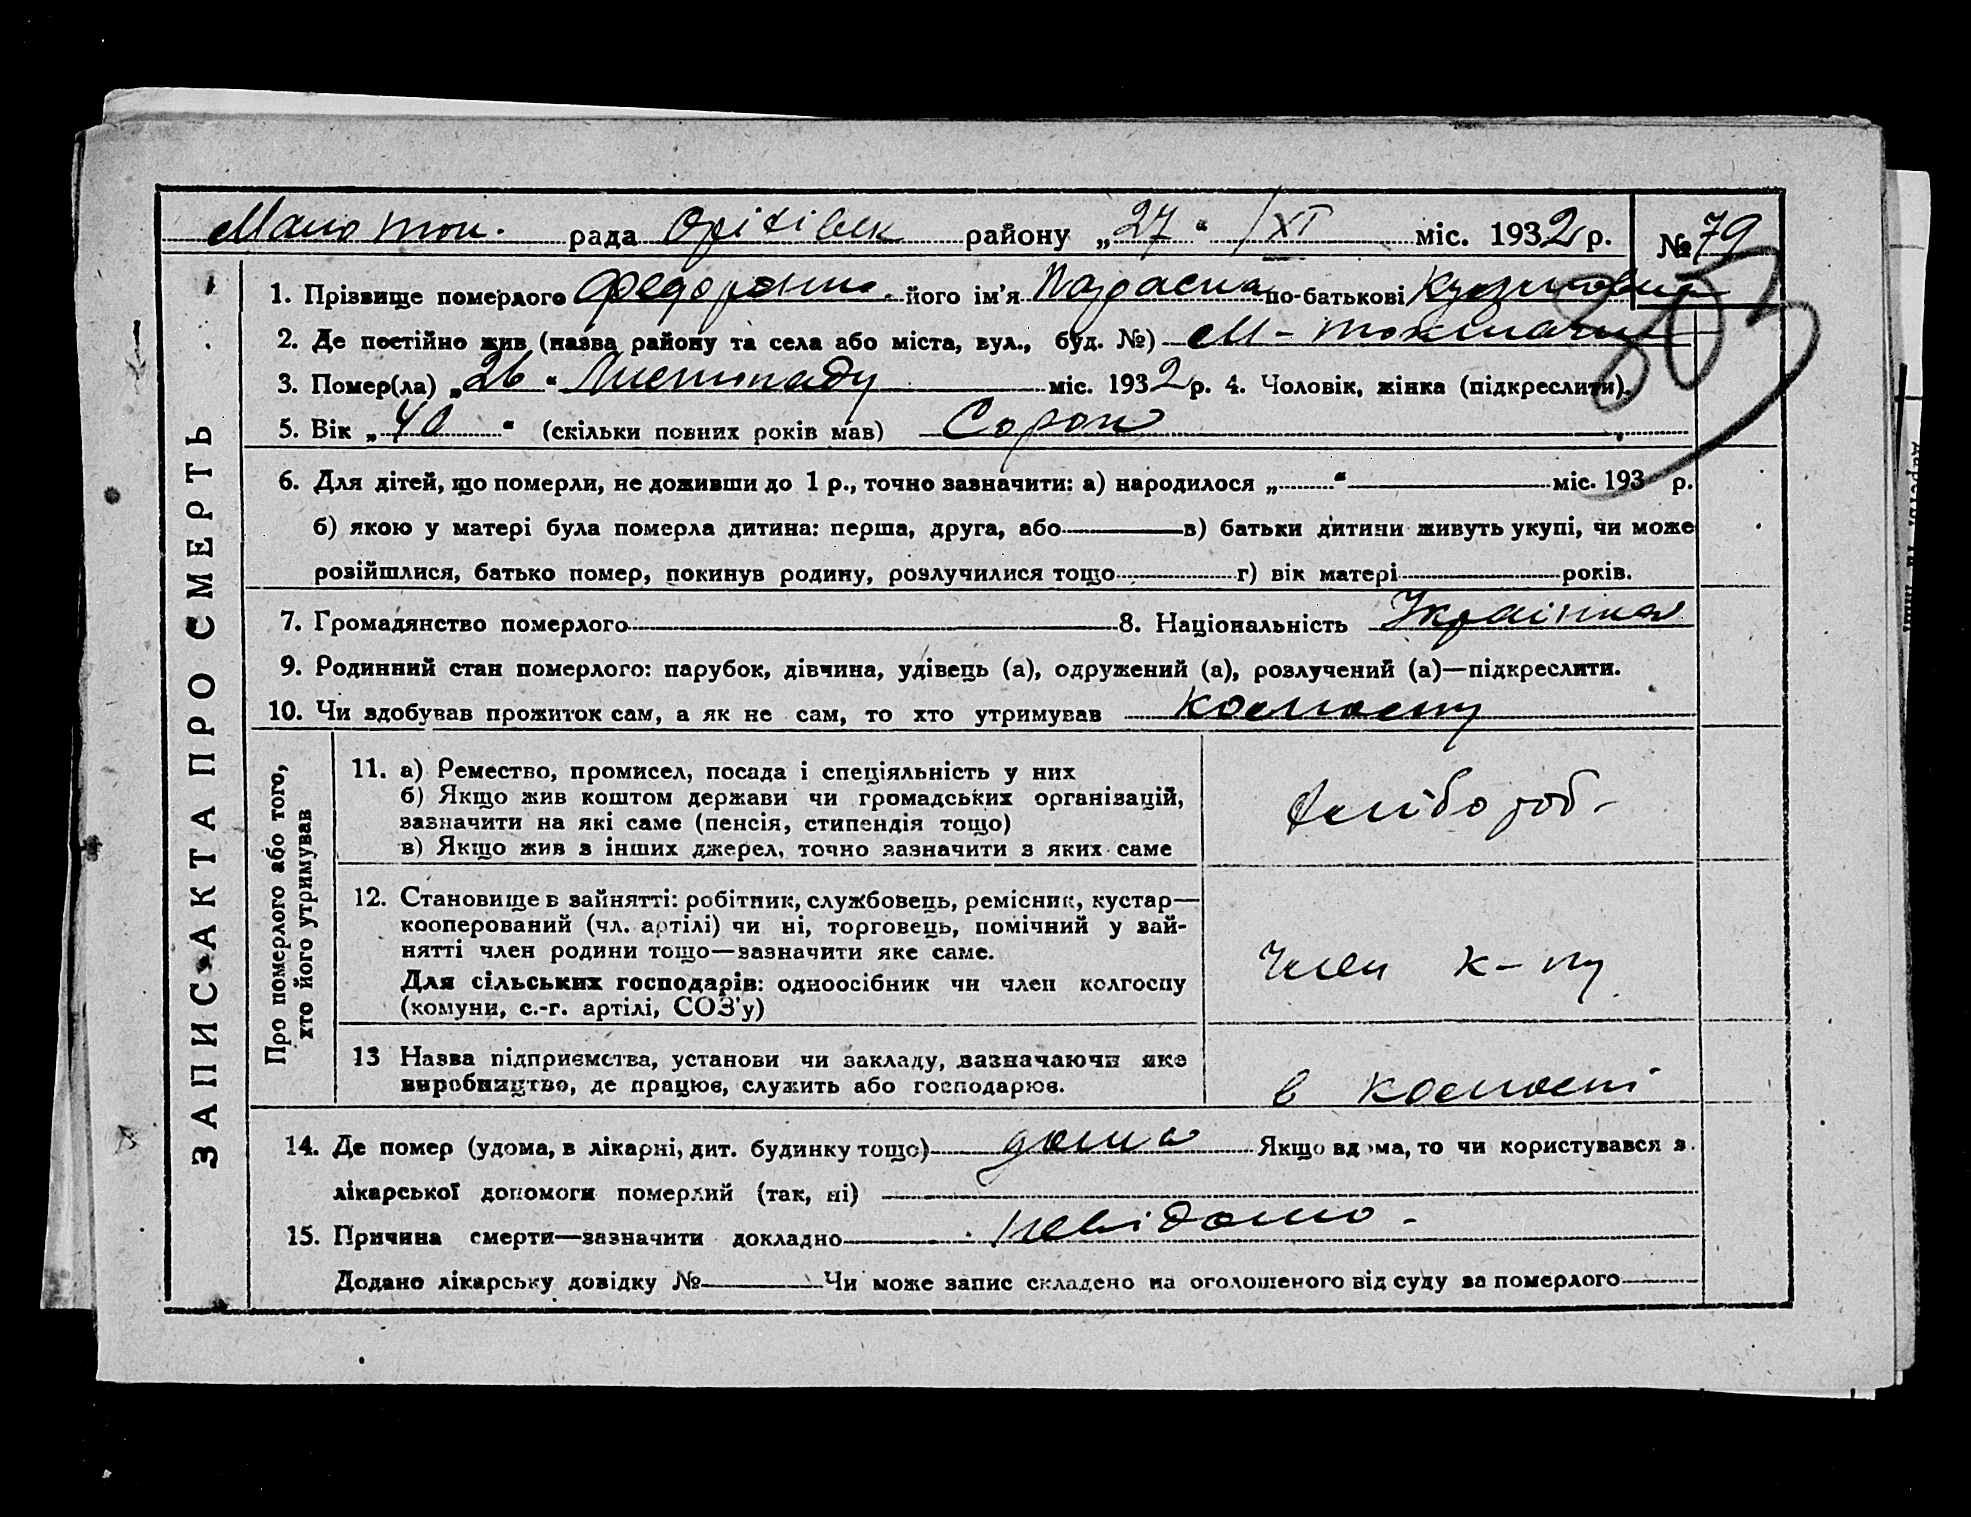 Мало ток. рада Оріхівськ району „27“ /XI міс. 1932 р. № 79
1. Прізвище померлого його ім'я по-батькові
2. Де постійно жив (назва району та села або міста, вул., буд. №) М-токмачка
3. Помер(ла) „26“ Листопаду міс. 1932 р. 4. Чоловік, жінка (підкреслити).
5. Вік „40“ (скільки повних років мав) Сорок
6. Для дітей, що померли, не доживши до 1 р., точно зазначити: а) народилося „ “ міс. 193 р.
б) якою у матері була померла дитина: перша, друга, або в) батьки дитини живуть укупі, чи може
розійшлися, батько помер, покинув родину, розлучилися тощо г) вік матері років.
7. Громадянство померлого 8. Національність Українка
9. Родинний стан померлого: парубок, дівчина, удівець (а), одружений (а), розлучений (а)—підкреслити.
10. Чи здобував прожиток сам, а як не сам, то хто утримував колгосп
ЗАПИС АКТА ПРО СМЕРТЬ
Про померлого або того,
хто його утримував
11. а) Ремество, промисел, посада і спеціяльність у них
б) Якщо жив коштом держави чи громадських організацій,
зазначити на які саме (пенсія, стипендія тощо)
в) Якщо жив з інших джерел, точно зазначити з яких саме
хлібороб-
12. Становище в зайнятті: робітник, службовець, ремісник, кустар—
кооперований (чл. артілі) чи ні, торговець, помічний у зай-
нятті член родини тощо—зазначити яке саме.
Для сільських господарів: одноосібник чи член колгоспу
(комуни, с.-г. артілі, СОЗ'у)
Член к-пу
13 Назва підприємства, установи чи закладу, зазначаючи яке
виробництво, де працює, служить або господарює.
в колгоспі
14. Де помер (удома, в лікарні, дит. будинку тощо) дома Якщо вдома, то чи користувався з
лікарської допомоги померлий (так, ні)
15. Причина смерти—зазначити докладно невідомо.
Додано лікарську довідку № Чи може запис складено на оголошеного від суду за померлого